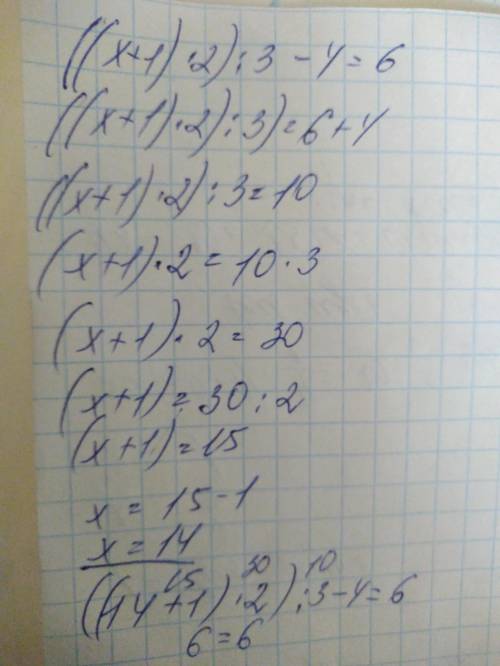 ((x+1)·2):3-4=6
((x+1)·2):3)=6+4
((x+1)·2):3=10
(x+1)·2=10·3
(x+1)·2=30
(x+1)=30:2
(x+1)=15
x=15-1
x=14
15 30 10
((14+1)·2):3-4=6
6=6